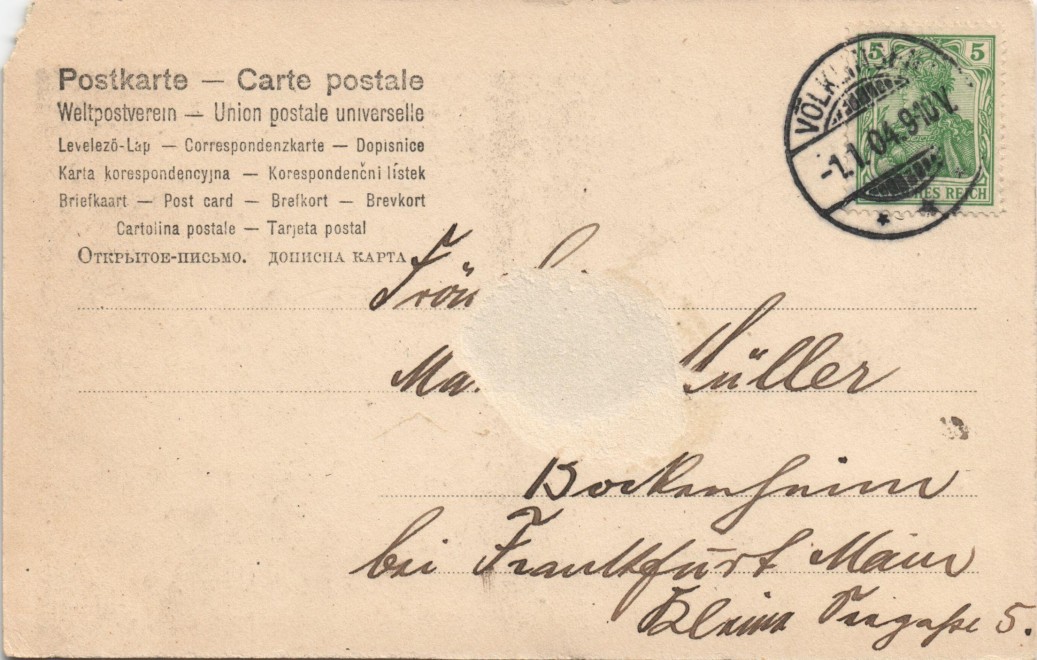 Postkarte — Carte postale
Weltpostverein — Union postale universelle
Levelező-Lap — Correspondenzkarte — Dopisnice
Karta korespondencyjna — Korespondenční lístek
Briefkaart — Post card — Brefkort — Brevkort
Cartolina postale — Tarjeta postal
Открытое-письмо. дописна карта
5 5
VÖLKLINGEN
-1.1.04.9-10V.
REICH
Müller
Bockenheim
bei Frankfurt Main
Kleine 5.